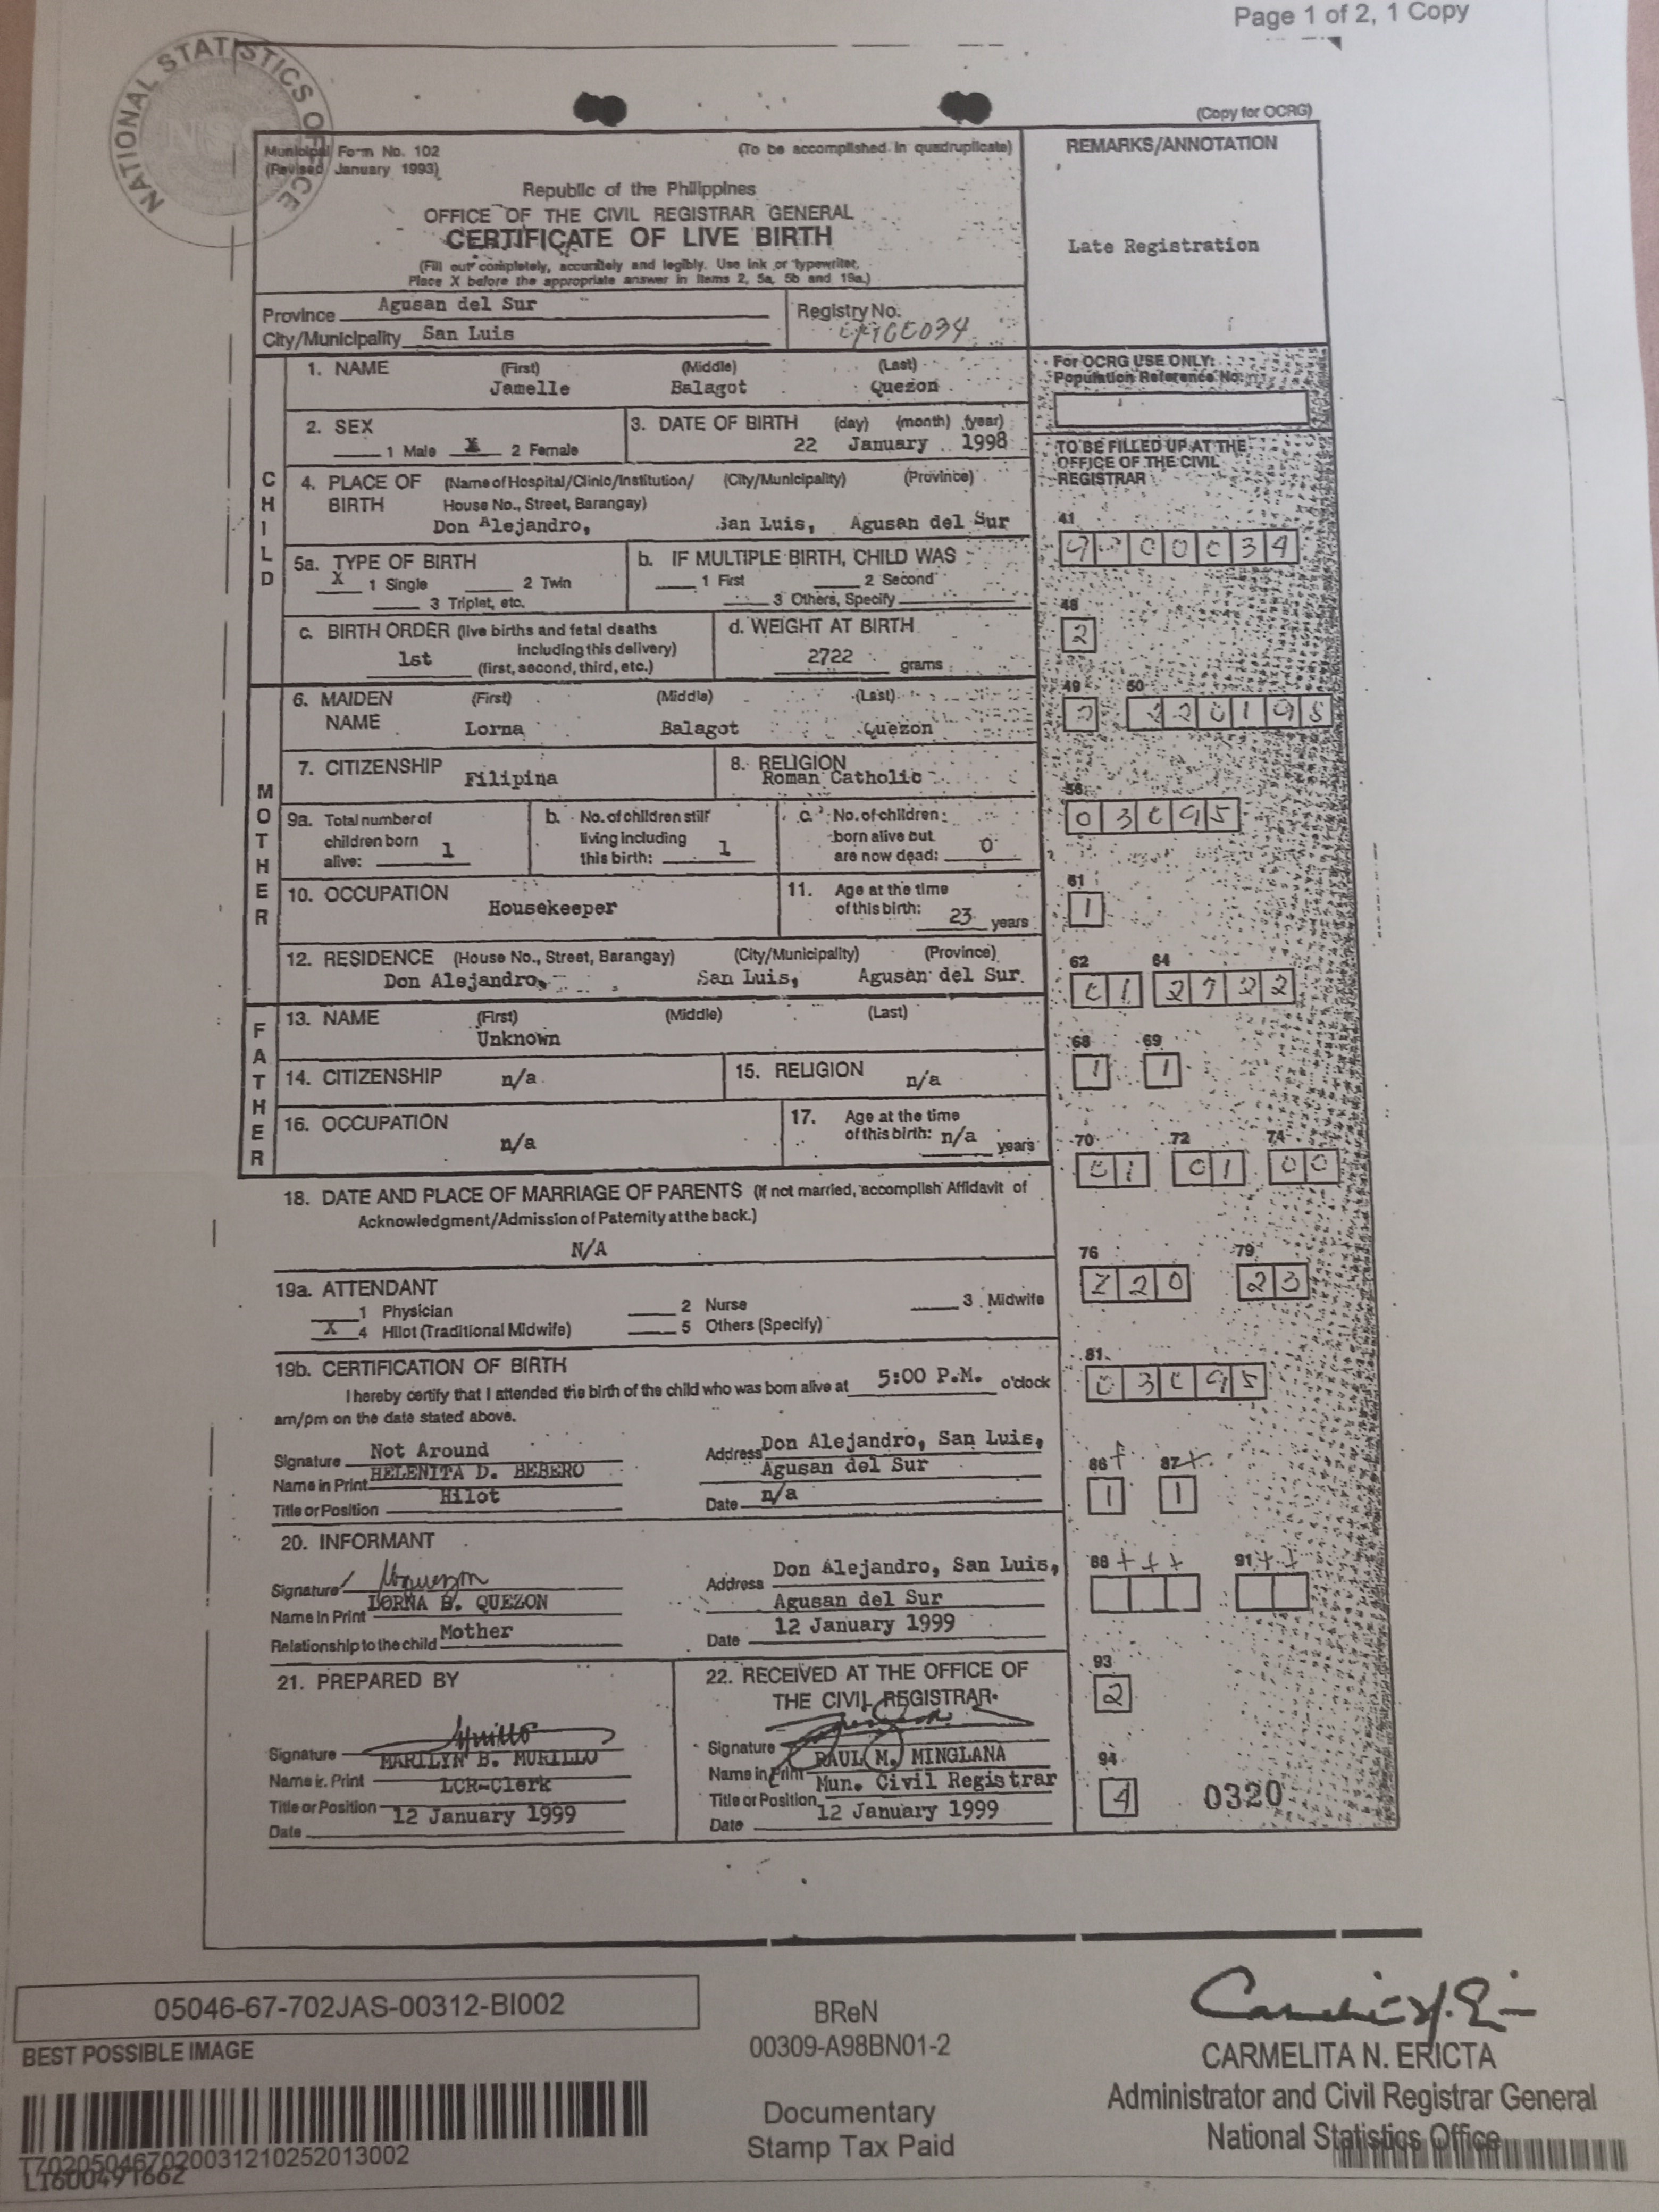 Page 1 of 2, 1 Copy
NATIONAL STATISTICS OFFICE
(Copy for OCRG)
Municipal Form No. 102
(To be accomplished in quadruplicate)
REMARKS/ANNOTATION
(Revised January 1993)
Republic of the Philippines
OFFICE OF THE CIVIL REGISTRAR GENERAL
CERTIFICATE OF LIVE BIRTH
Late Registration
(Fill out completely, accurately and legibly. Use ink or typewriter.
Place X before the appropriate answer in items 2, 5a, 5b and 19a.)
Province Agusan del Sur
Registry No.
City/Municipality San Luis
CHILD
1. NAME (First) (Middle) (Last)
Jamelle Balagot Quezon
For OCRG USE ONLY:
Population Reference No.
2. SEX
1 Male X 2 Female
3. DATE OF BIRTH (day) (month) (year)
22 January 1998
TO BE FILLED UP AT THE
OFFICE OF THE CIVIL
REGISTRAR
4. PLACE OF BIRTH (Name of Hospital/Clinic/Institution/ (City/Municipality) (Province)
House No., Street, Barangay)
Don Alejandro, San Luis, Agusan del Sur
41
5a. TYPE OF BIRTH
X 1 Single 2 Twin
3 Triplet, etc.
b. IF MULTIPLE BIRTH, CHILD WAS
1 First 2 Second
3 Others, Specify
48
2
c. BIRTH ORDER (live births and fetal deaths
including this delivery)
1st (first, second, third, etc.)
d. WEIGHT AT BIRTH
2722 grams
MOTHER
6. MAIDEN NAME (First) (Middle) (Last)
Lorna Balagot Quezon
49 50
2 220198
7. CITIZENSHIP Filipina
8. RELIGION
Roman Catholic
56
03095
9a. Total number of
children born
alive: 1
b. No. of children still
living including
this birth: 1
c. No. of children
born alive but
are now dead: 0
10. OCCUPATION Housekeeper
11. Age at the time
of this birth: 23 years
61
1
12. RESIDENCE (House No., Street, Barangay) (City/Municipality) (Province)
Don Alejandro, San Luis, Agusan del Sur
62 64
01 2722
FATHER
13. NAME (First) (Middle) (Last)
Unknown
68 69
1 1
14. CITIZENSHIP n/a
15. RELIGION n/a
16. OCCUPATION n/a
17. Age at the time
of this birth: n/a years
70 72 74
01 01 00
18. DATE AND PLACE OF MARRIAGE OF PARENTS (If not married, accomplish Affidavit of
Acknowledgment/Admission of Paternity at the back.)
N/A
76 79
220 23
19a. ATTENDANT
1 Physician 2 Nurse 3 Midwife
X 4 Hilot (Traditional Midwife) 5 Others (Specify)
19b. CERTIFICATION OF BIRTH
I hereby certify that I attended the birth of the child who was born alive at 5:00 P.M. o'clock
am/pm on the date stated above.
81
03095
Signature Not Around
Name in Print HELENITA D. BEBERO
Title or Position Hilot
Address Don Alejandro, San Luis,
Agusan del Sur
Date n/a
86 87
1 1
20. INFORMANT
Signature
Name in Print LORNA B. QUEZON
Relationship to the child Mother
Address Don Alejandro, San Luis,
Agusan del Sur
Date 12 January 1999
88 91
21. PREPARED BY
Signature
Name in Print MARILYN B. MURILLO
Title or Position LCR-Clerk
Date 12 January 1999
22. RECEIVED AT THE OFFICE OF
THE CIVIL REGISTRAR
Signature
Name in Print RAUL M. MINGLANA
Title or Position Mun. Civil Registrar
Date 12 January 1999
93
2
94
4
0320
05046-67-702JAS-00312-BI002
BEST POSSIBLE IMAGE
T702050467020031210252013002
LI600491662
BReN
00309-A98BN01-2
Documentary
Stamp Tax Paid
CARMELITA N. ERICTA
Administrator and Civil Registrar General
National Statistics Office